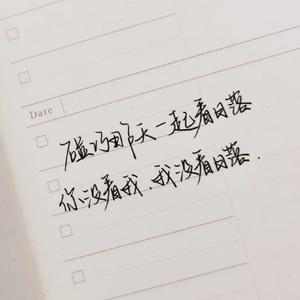 Date
磕巧那天一起看日落
你没看我.我没看日落.